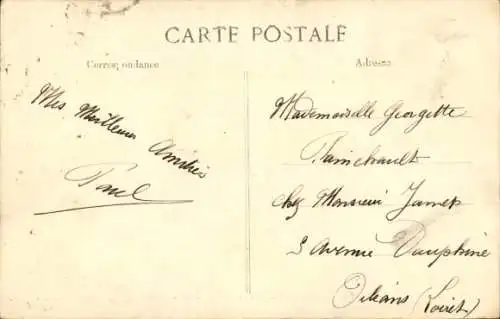 CARTE POSTALE
Correspondance
Adresse
Mes Meilleures Amitiés
Paul
Mademoiselle Georgette
chez Monsieur James
3 Avenue Dauphine
Orléans (Loiret)